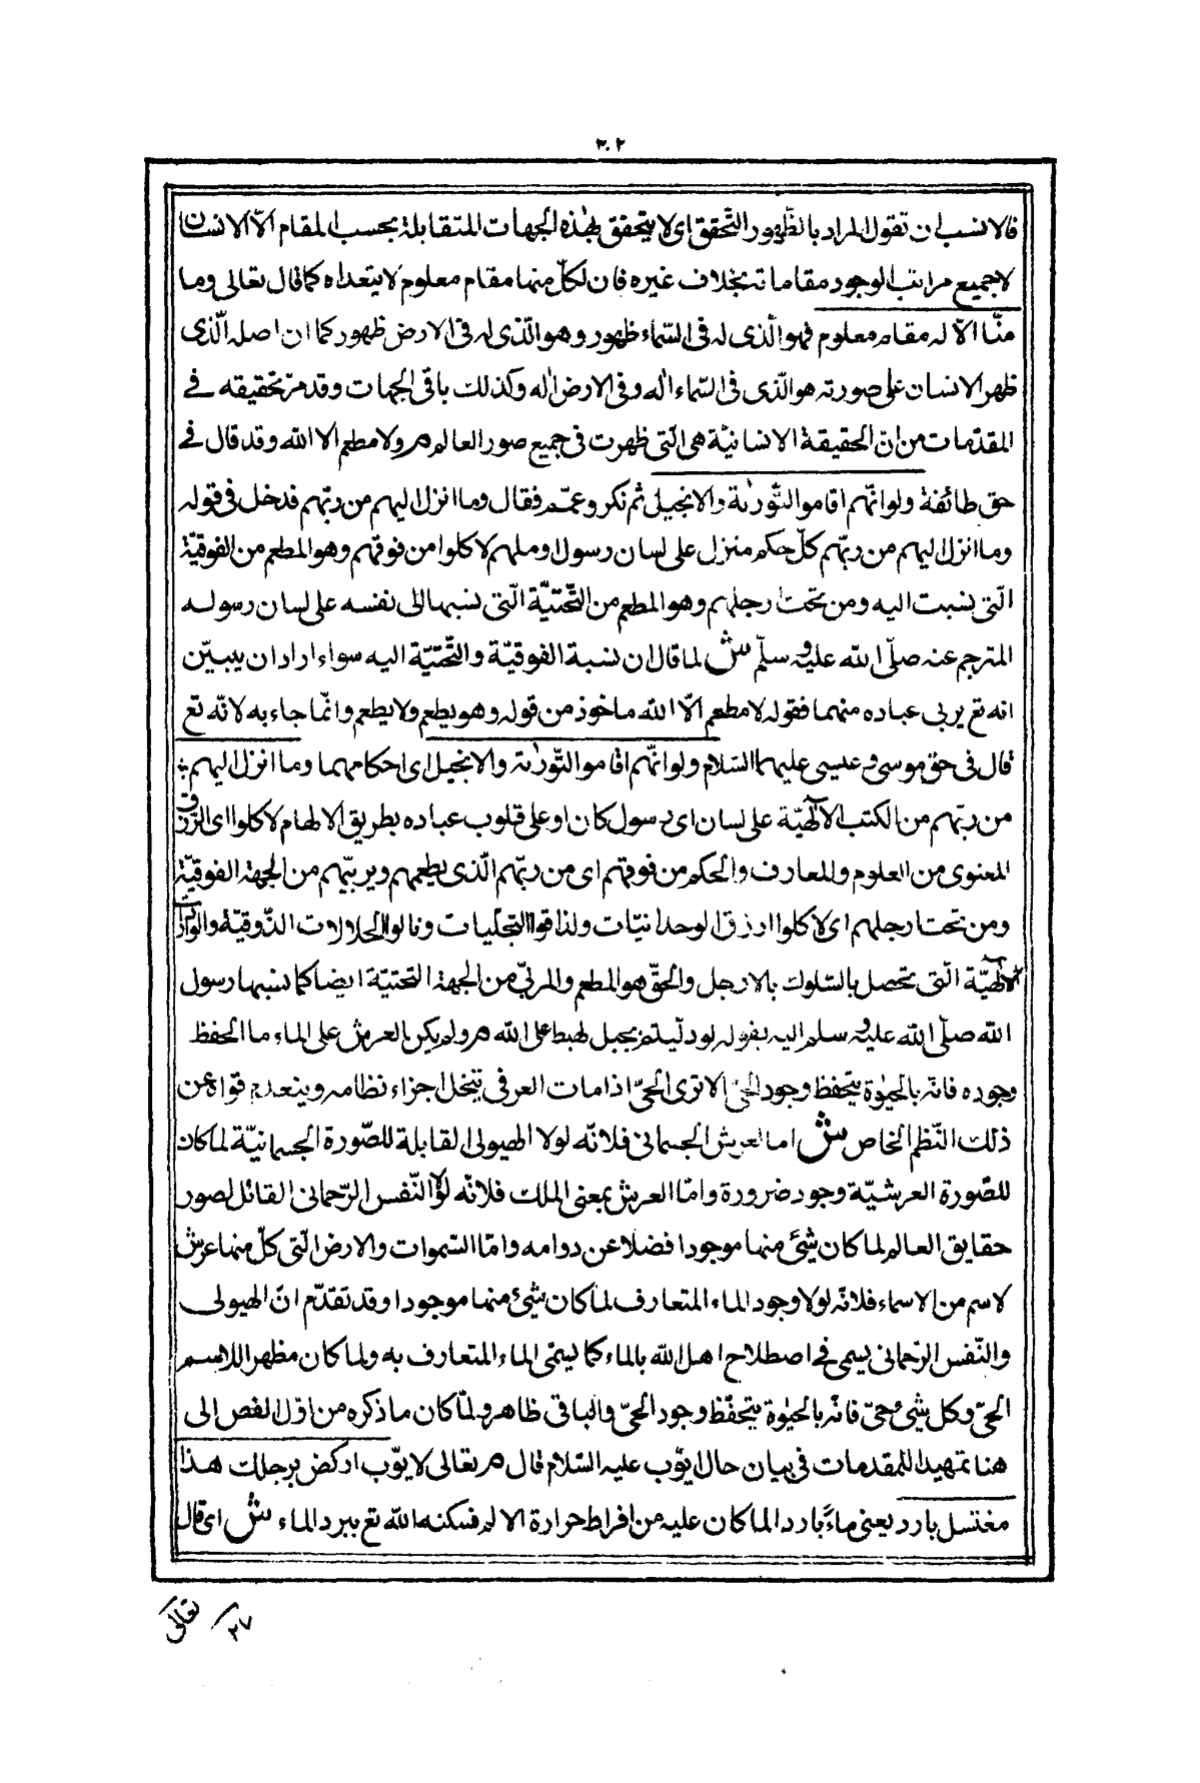 ٣٠٢
فالانسب ان تقول المراد بالظّهور التّحقق اى لا يتحقق بهذه الجهات المتقابلة بحسب المقام الّا الانسان
لا جميع مراتب الوجود مقاماته بخلاف غيره فان لكلّ منها مقام معلوم لا يتعداه كما قال تعالى وما
منّا الّا له مقام معلوم فهو الّذى له فى السّماء ظهور وهو الّذى له فى الارض ظهور كما ان اصله الّذى
ظهر الانسان على صورته هو الّذى فى السّماء اله وفى الارض اله وكذلك باقى الجهات وقد مرّ تحقيقه فى
المقدّمات من انّ الحقيقة الانسانيّة هى الّتى ظهرت فى جميع صور العالم م ولا مطعم الا الله وقد قال فى
حق طائفة ولو انّهم اقاموا التّورٰية والانجيل ثم نكر وعمّم فقال وما انزل اليهم من ربّهم فدخل فى قوله
وما انزل اليهم من ربّهم كلّ حكم منزل على لسان رسول او ملهم لاكلوا من فوقهم وهو المطعم من الفوقيّة
الّتى نسبت اليه ومن تحت ارجلهم وهو المطعم من التّحتيّة الّتى نسبها الى نفسه على لسان رسوله
المترجم عنه صلّى الله عليه وسلّم ش لما قال ان نسبة الفوقيّة والتّحتيّة اليه سواء اراد ان يبيّن
انه تع يربى عباده منهما فقوله لا مطعم الّا الله ماخوذ من قوله وهو يطعم ولا يطعم وانّما جاء به لانّه تع
قال فى حق موسى وعيسى عليهما السّلام ولو انّهم اقاموا التّورٰية والانجيل اى احكامهما وما انزل اليهم
من ربّهم من الكتب الالٰهيّة على لسان اى رسول كان او على قلوب عباده بطريق الالهام لاكلوا اى الرّزق
المعنوى من العلوم والمعارف والحكم من فوقهم اى من ربّهم الّذى يطعمهم ويربيّهم من الجهة الفوقيّة
ومن تحت ارجلهم اى لاكلوا ارزق الوحدانيّات ولذاقوا التجلّيات ونالوا الحالات الذّوقيّة والواردات
الالٰهيّة الّتى تحصل بالسّلوك بالارجل والحقّ هو المطعم والمربّى من الجهة التحتيّة ايضا كما نسبها رسول
الله صلّى الله عليه وسلم اليه بقوله لو دلّيتم بحبل لهبط على الله م ولو لم يكن العرش على الماء ما انحفظ
وجوده فانّه بالحيٰوة يتحفظ وجود الحىّ الا ترى الحىّ اذا مات العرفى تنحل اجزاء نظامه وينعدم قواه عن
ذلك النّظم الخاص ش اما العرش الجسمانى فلانّه لولا الهيولى القابلة للصّورة الجسمانيّة لما كان
للصّورة العرشيّة وجود ضرورة وامّا العرش بمعنى الملك فلانّه لولا النّفس الرّحمانى القائل لصور
حقايق العالم لما كان شئ منها موجودا فضلا عن دوامه وامّا السّموات والارض الّتى كلّ منها عرش
لاسم من الاسماء فلانّه لولا وجود الماء المتعارف لما كان شئ منها موجودا وقد تقدّم انّ الهيولى
والنّفس الرّحمانى يسمى فى اصطلاح اهل الله بالماء كما يسمّى الماء المتعارف به ولما كان مظهر اللاسم
الحىّ وكل شئ حى فانّه بالحيٰوة يتحفّظ وجود الحىّ والباقى ظاهر ولمّا كان ما ذكره من اوّل الفص الى
هنا تمهيدا للمقدمات فى بيان حال ايّوب عليه السّلام قال م تعالى لايّوب اركض برجلك هذا
مغتسل بارد يعنى ماءً باردا لما كان عليه من افراط حرارة الالم فسكنه الله تع ببرد الماء ش اى قال
٢٧ تعالى